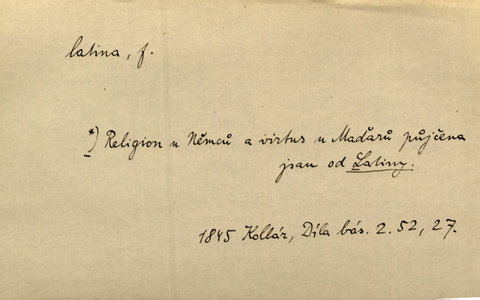 latina, f.
*) Religion u Němců a virtus u Maďarů půjčena
jsau od Latiny.
1845 Kollár, Díla bás. 2.52, 27.